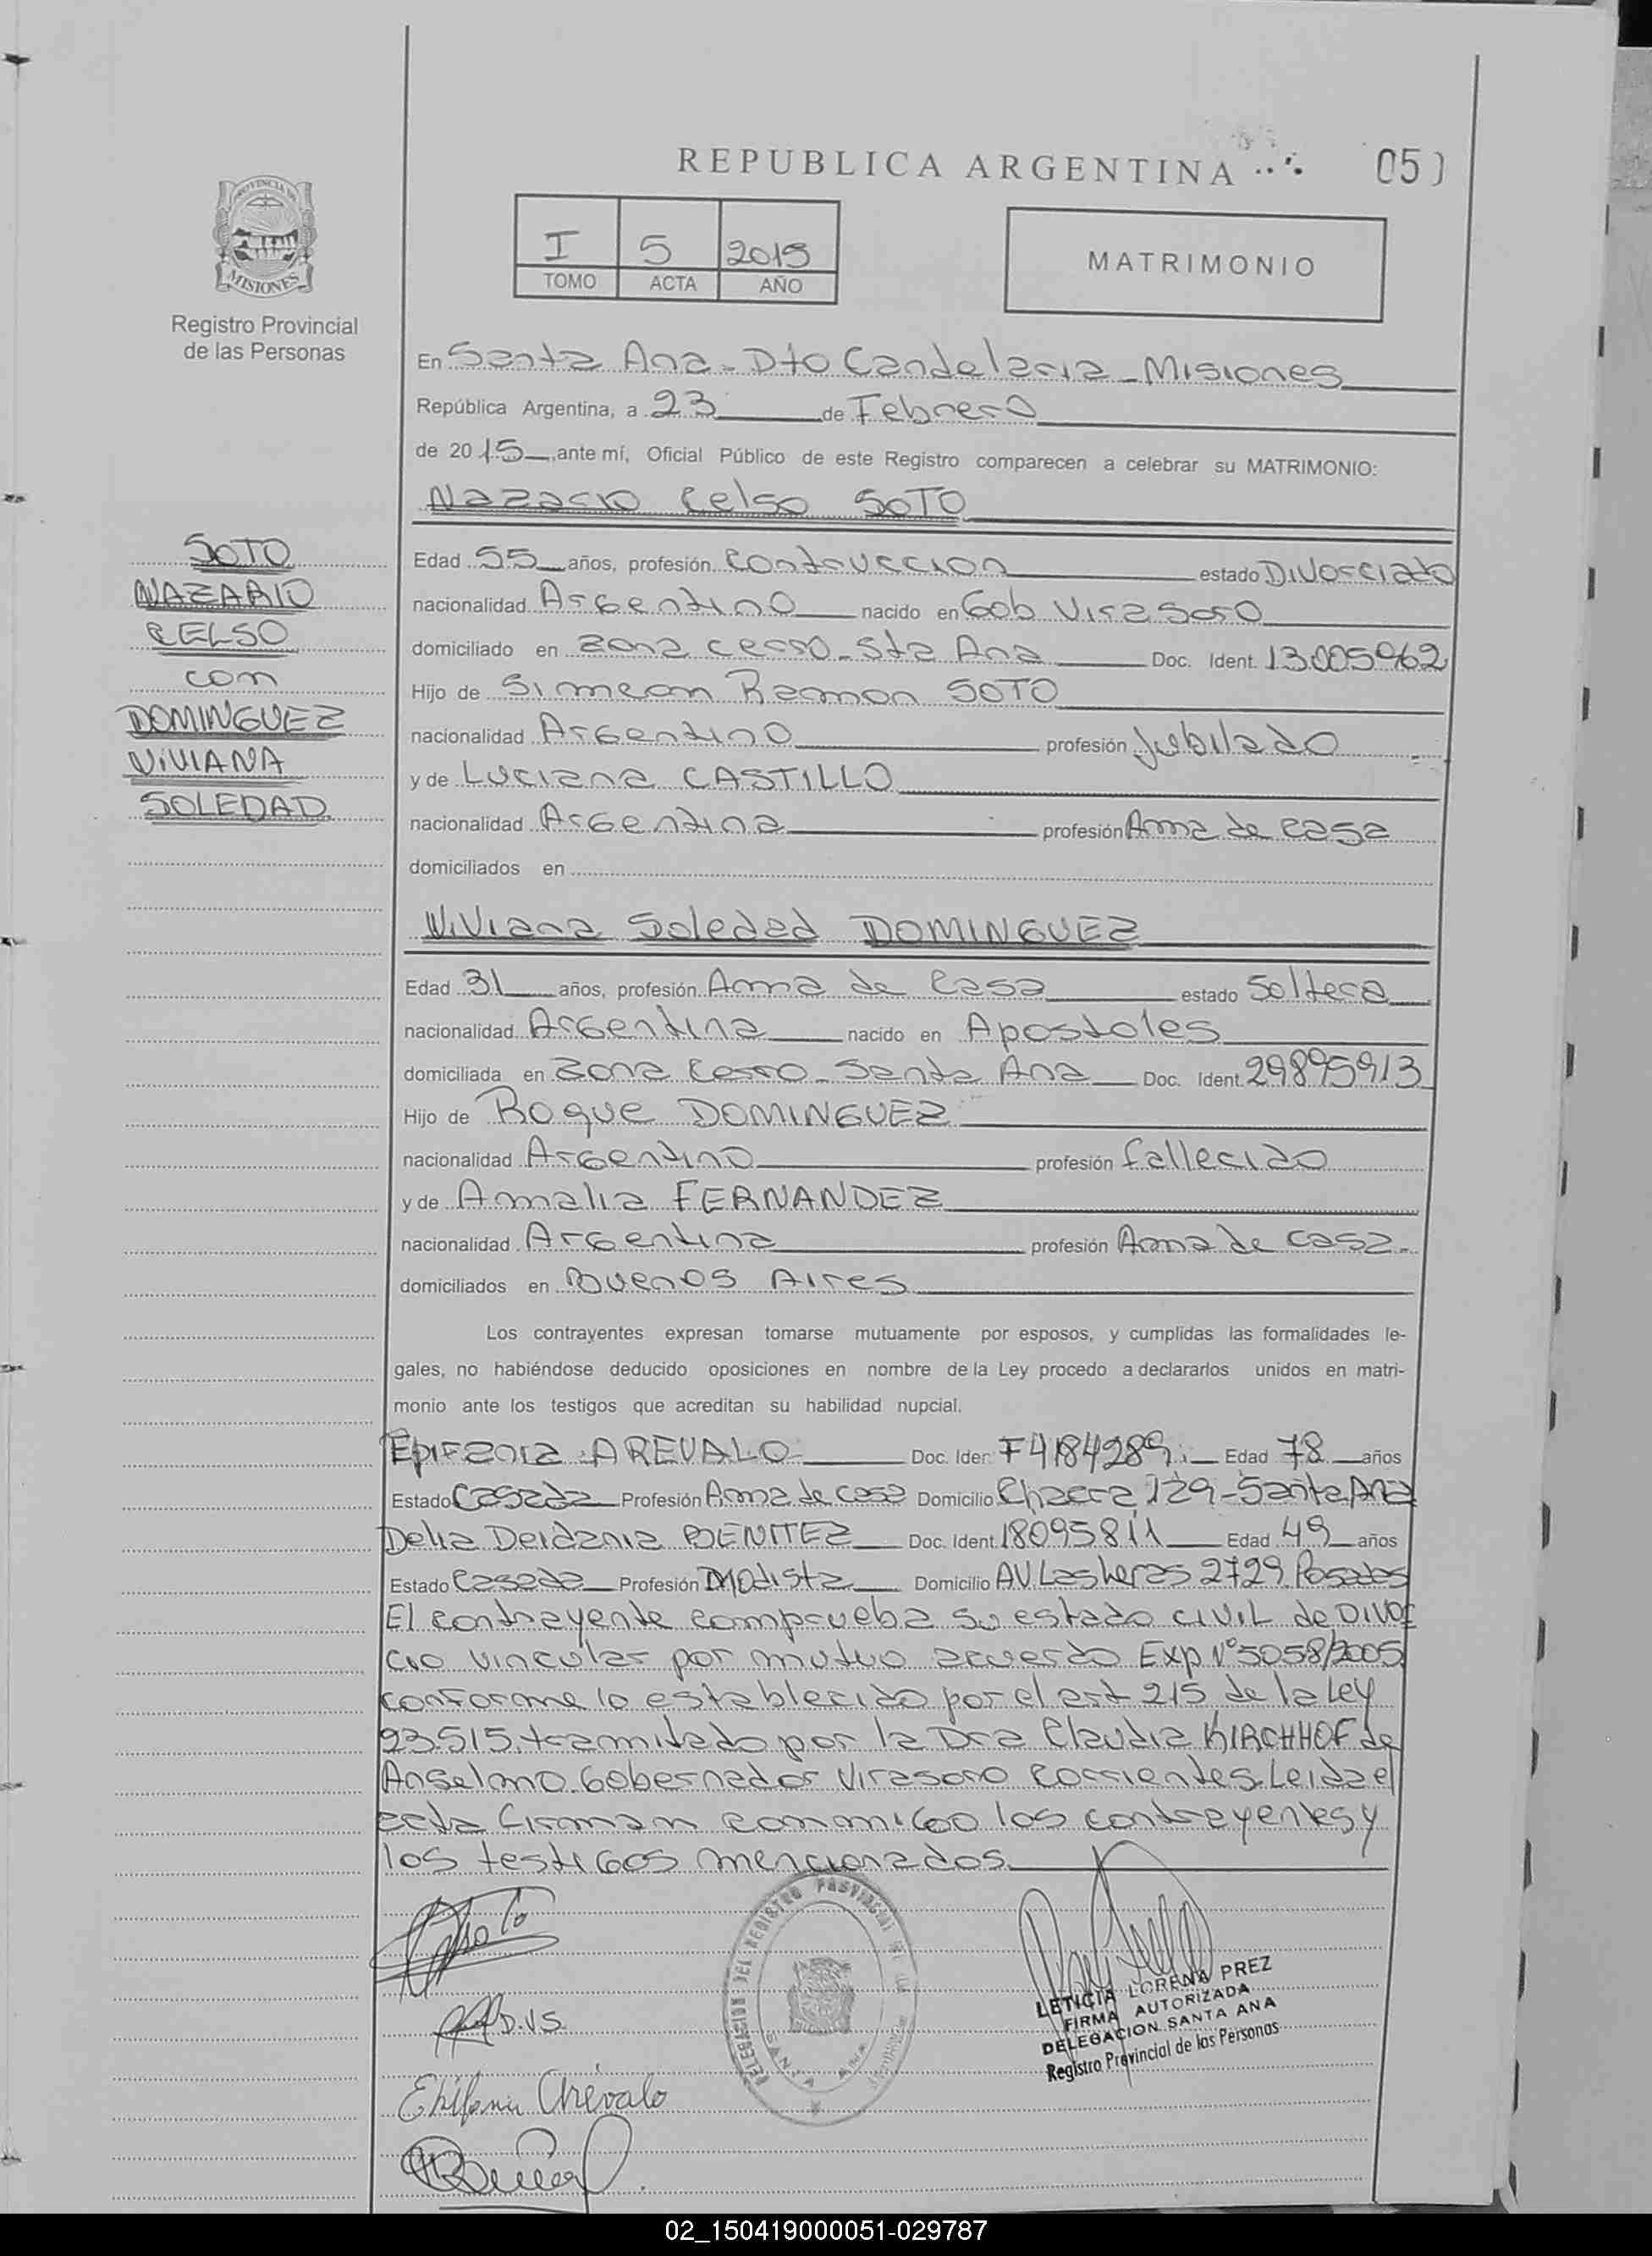 REPUBLICA ARGENTINA
05
PROVINCIA DE
MISIONES
Registro Provincial
de las Personas
I 5 2015
TOMO ACTA AÑO
MATRIMONIO
En Santa Ana - Dto Candelaria - Misiones
República Argentina, a 23 de Febrero
de 2015, ante mí, Oficial Público de este Registro comparecen a celebrar su MATRIMONIO:
Nazario Celso SOTO
SOTO
NAZARIO
CELSO
com
DOMINGUEZ
VIVIANA
SOLEDAD
Edad 55 años, profesión Contruccion estado Divorciado
nacionalidad Argentino nacido en Gob Virasoro
domiciliado en Zona cerro - Sta Ana Doc. Ident. 13.005.962
Hijo de Simeon Ramon SOTO
nacionalidad Argentino profesión Jubilado
y de Luciana CASTILLO
nacionalidad Argentina profesión Ama de casa
domiciliados en
Viviana Soledad DOMINGUEZ
Edad 31 años, profesión Ama de Casa estado Soltera
nacionalidad Argentina nacido en Apostoles
domiciliada en Zona Cerro - Santa Ana Doc. Ident. 29895913
Hijo de Roque DOMINGUEZ
nacionalidad Argentino profesión fallecido
y de Amalia FERNANDEZ
nacionalidad Argentina profesión Ama de casa
domiciliados en Buenos Aires
Los contrayentes expresan tomarse mutuamente por esposos, y cumplidas las formalidades le-
gales, no habiéndose deducido oposiciones en nombre de la Ley procedo a declararlos unidos en matri-
monio ante los testigos que acreditan su habilidad nupcial.
Epifania AREVALO Doc. Iden F4184289 Edad 78 años
Estado Casada Profesión Ama de casa Domicilio Chacra 129 - Santa Ana
Delia Deidania BENITEZ Doc. Ident. 18095811 Edad 49 años
Estado Casada Profesión Modista Domicilio AV. Las heras 2729. Posadas
El contrayente comprueba su estado CIVIL de DIVOR
cio vincular por mutuo acuerdo Exp Nº 5058/2005
conforme lo establecido por el art 215 de la Ley
23.515. tramitado por la Dra Claudia KIRCHHOF de
Anselmo. Gobernador Virasoro Corrientes. Leida el
acta firman conmigo los contrayentes y
los testigos mencionados
Soto
D.V.S.
Ehifania Arévalo
DELEGACION DEL REGISTRO PROVINCIAL DE LAS PERSONAS
SANTA ANA
LETICIA LORENA PREZ
FIRMA AUTORIZADA
DELEGACION SANTA ANA
Registro Provincial de las Personas
02_150419000051-029787